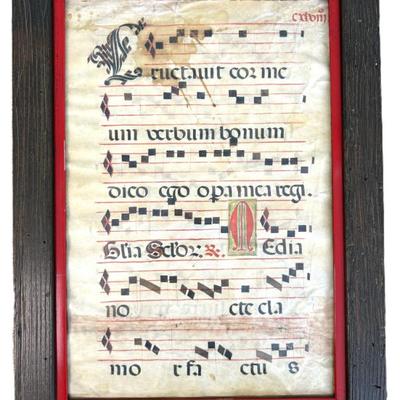 cxlviij
Eructauit cor me
um verbum bonum
dico ego opa mea regi.
Glia Sclor: Media
no cte cla
mo r fa ctu s